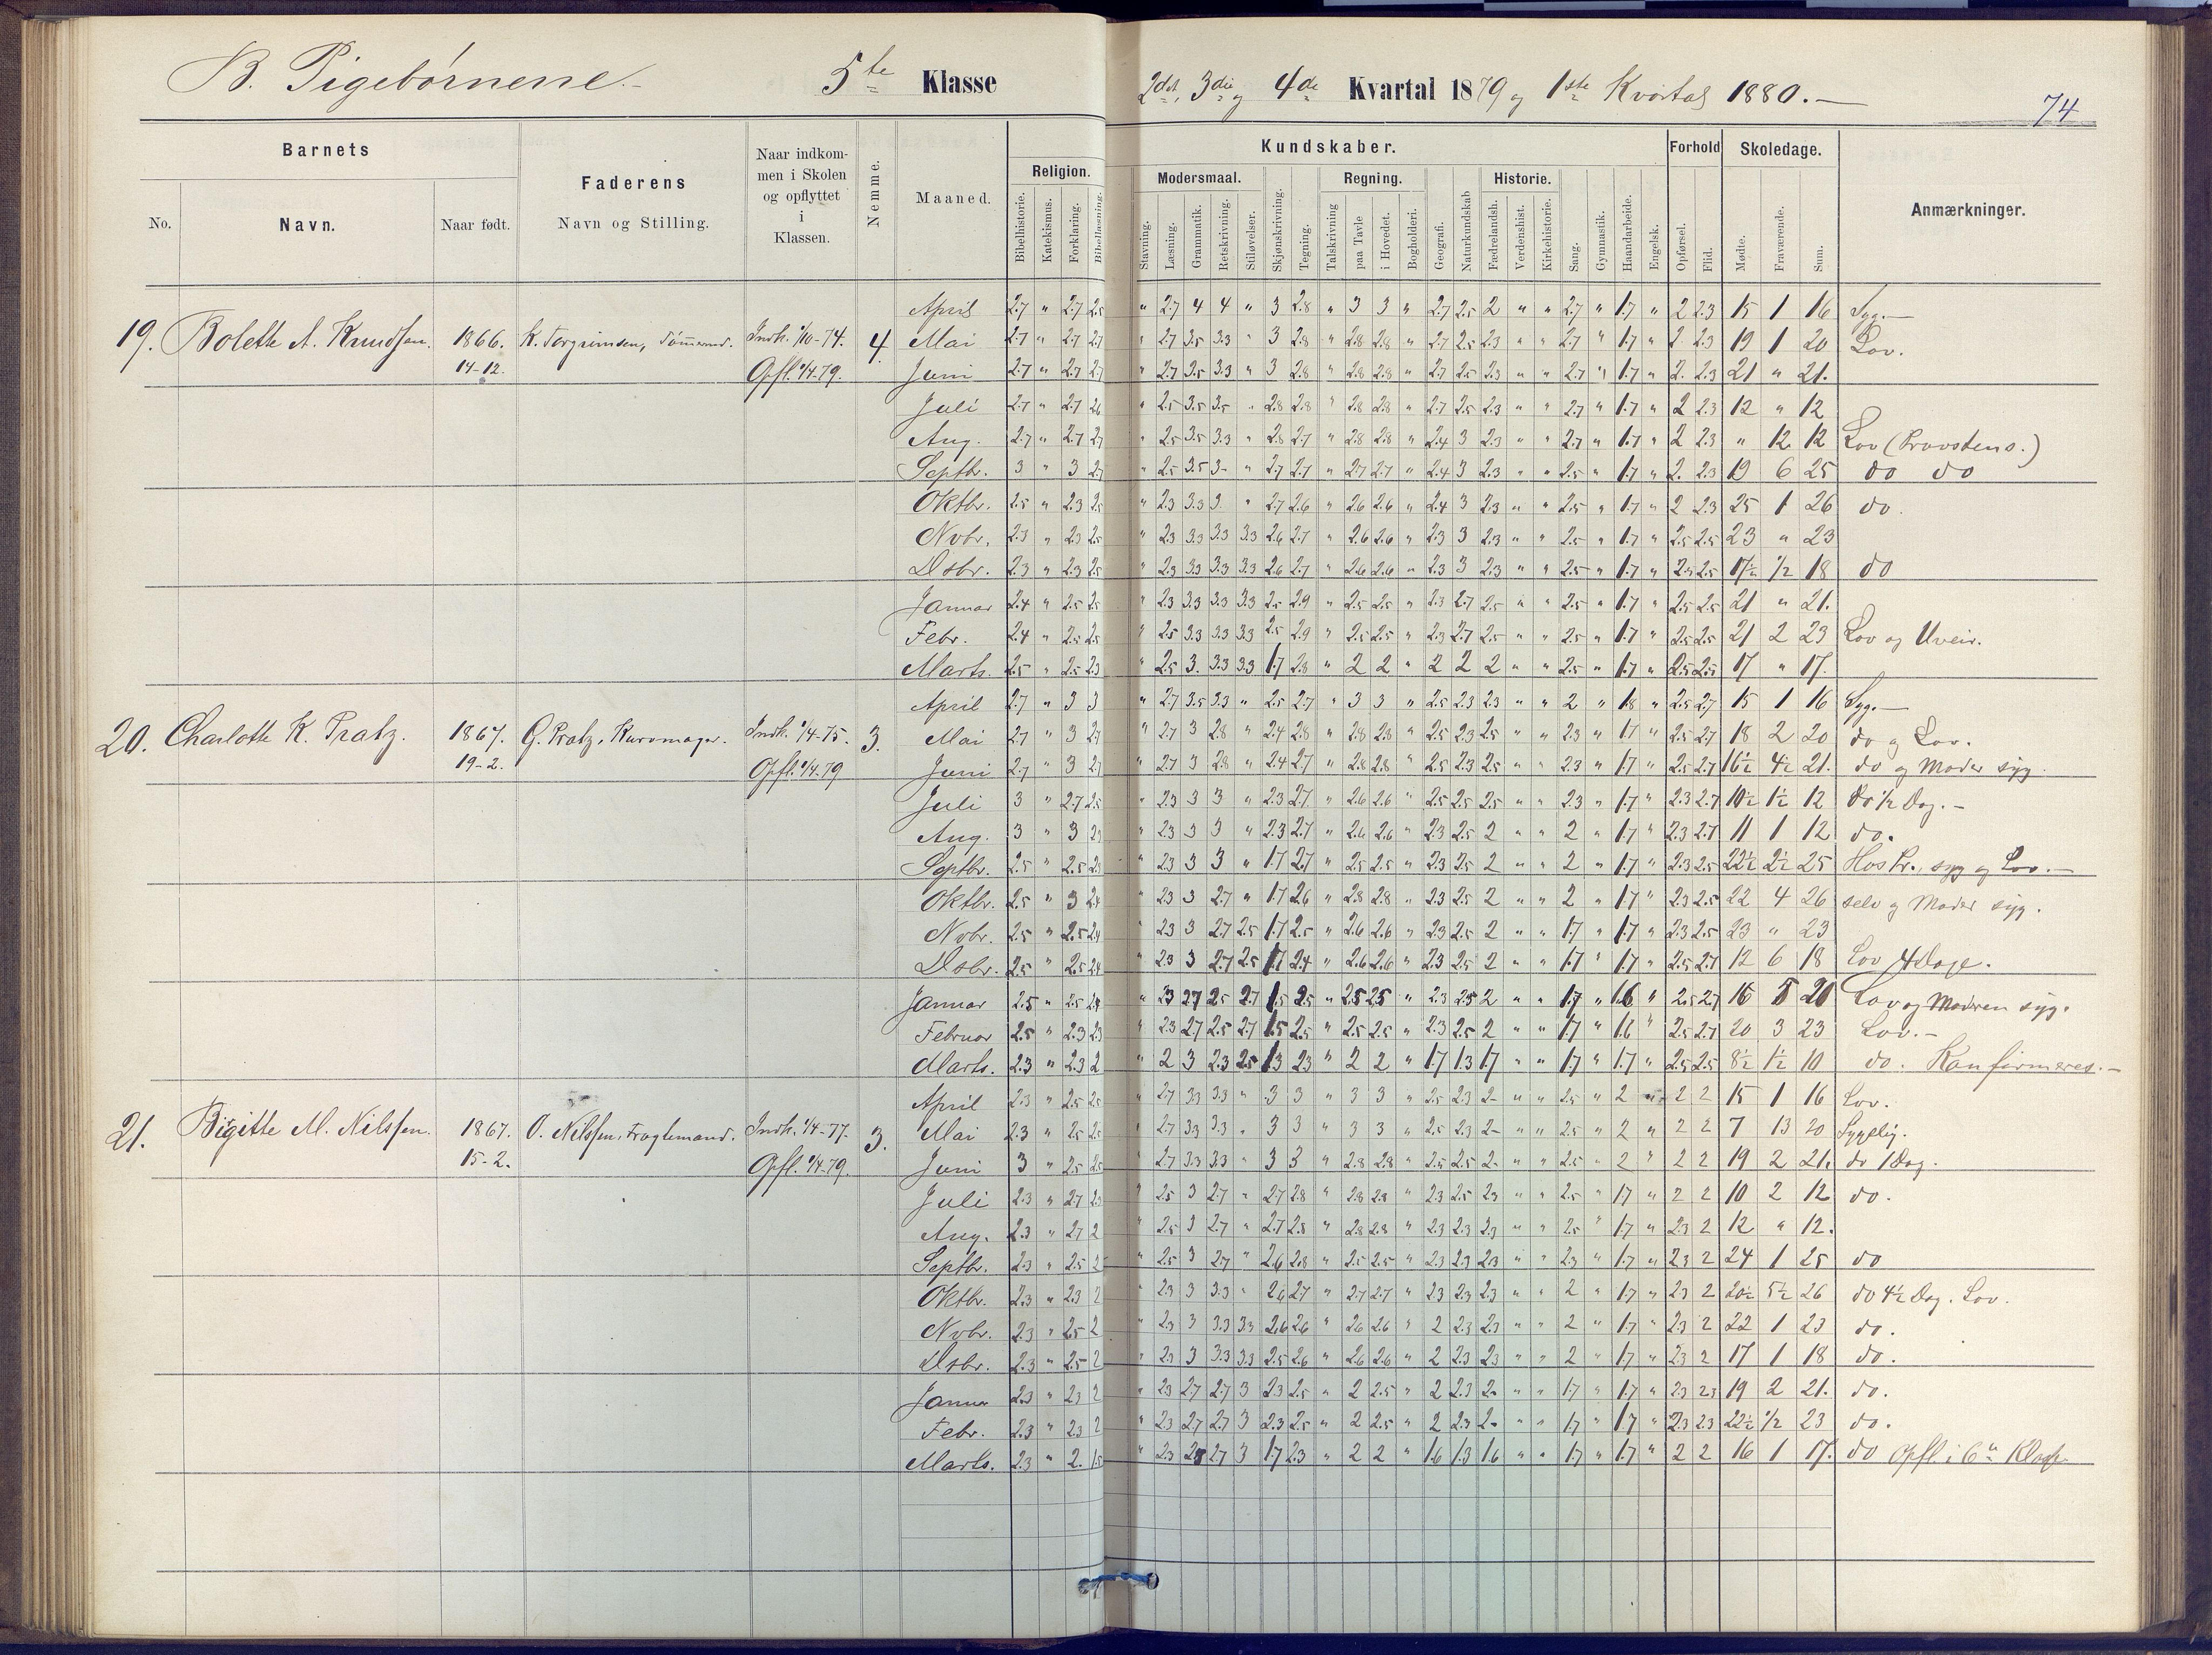 B. Pigebørnene.-
5te Klasse
2det, 3die og 4de Kvartal 1879 og 1ste Kvartal 1880.-
74
Barnets
Faderens
Naar indkommen i Skolen og opflyttet i Klassen.
Nemme.
Maaned.
Kundskaber.
Forhold
Skoledage.
Anmærkninger.
Religion.
Modersmaal.
Regning.
Historie.
No.
Navn.
Naar født.
Navn og Stilling.
Bibelhistorie.
Katekismus.
Forklaring.
Bibellæsning.
Stavning.
Læsning.
Grammatik.
Retskrivning.
Stiløvelser.
Skjønskrivning.
Tegning.
Talskrivning
paa Tavle
i Hovedet.
Bogholderi.
Geografi.
Naturkundskab
Fædrelandsh.
Verdenshist.
Kirkehistorie.
Sang.
Gymnastik.
Haandarbeide.
Engelsk.
Opførsel.
Flid.
Mødte.
Fraværende.
Sum.
19. Bolette A. Knudsen. 1866. 14-12. K. Torgrimsen, Tømmermd. Indk. 1/10-74. Opfl. 1/4-79. 4.
April 2.7 " 2.7 2.5 " 2.7 4 4 " 3 2.8 " 3 3 " 2.7 2.5 2 " " 2.7 " 1.7 " 2 2.3 15 1 16 Syg.-
Mai 2.7 " 2.7 2.7 " 2.7 3.5 3.3 " 3 2.8 " 2.8 2.8 " 2.7 2.5 2.3 " " 2.7 " 1.7 " 2 2.3 19 1 20 Lov.
Juni 2.7 " 2.7 2.7 " 2.7 3.5 3.3 " 3 2.8 " 2.8 2.8 " 2.7 2.5 2.3 " " 2.7 " 1.7 " 2. 2.3 21 " 21.
Juli 2.7 " 2.7 2.6 " 2.5 3.5 3.5 " 2.8 2.8 " 2.8 2.8 " 2.7 2.5 2.3 " " 2.7 " 1.7 " 2 2.3 12 " 12
Aug. 2.7 " 2.7 2.7 " 2.5 3.5 3.3 " 2.8 2.7 " 2.8 2.8 " 2.4 3 2.3 " " 2.7 " 1.7 " 2 2.3 " 12 12 Lov (Provstens.)
Septbr. 3 " 3 2.7 " 2.5 3.5 3- " 2.7 2.7 " 2.7 2.7 " 2.4 3 2.3 " " 2.5 " 1.7 " 2. 2.3 19 6 25 do do
Oktbr. 2.5 " 2.3 2.5 " 2.3 3.3 3. " 2.7 2.6 " 2.6 2.6 " 2.4 3 2.3 " " 2.5 " 1.7 " 2 2.3 25 1 26 do.
Nvbr. 2.3 " 2.3 2.5 " 2.3 3.3 3.3 3.3 2.6 2.7 " 2.6 2.6 " 2.3 3 2.3 " " 2.5 " 1.7 " 2.5 2.5 23 " 23
Dsbr. 2.3 " 2.3 2.5 " 2.3 3.3 3.3 3.3 2.6 2.7 " 2.6 2.6 " 2.3 3 2.3 " " 2.5 " 1.7 " 2.5 2.5 17½ ½ 18 do
Januar 2.4 " 2.5 2.5 " 2.3 3.3 3.3 3.3 2.5 2.9 " 2.5 2.5 " 2.3 2.7 2.5 " " 2.5 " 1.7 " 2.5 2.5 21 " 21.
Febr. 2.4 " 2.5 2.5 " 2.5 3.3 3.3 3.3 2.5 2.9 " 2.5 2.5 " 2.3 2.7 2.5 " " 2.5 " 1.7 " 2.5 2.5 21 2 23 Lov og Uveir.
Marts. 2.5 " 2.5 2.3 " 2.5 3. 3.3 3.3 1.7 2.8 " 2 2 " 2 2 2 " " 2.5 " 1.7 " 2.5 2.5 17 " 17.
20. Charlotte K. Pratz. 1867. 19-2. G. Pratz, Kurvmager. Indk. 1/4-75. Opfl. 1/4-79 3.
April 2.7 " 3 3 " 2.7 3.5 3.3 " 2.5 2.7 " 3 3 " 2.5 2.3 2.3 " " 2 " 1.8 " 2.5 2.7 15 1 16 Syg.-
Mai 2.7 " 3 2.7 " 2.7 3 2.8 " 2.4 2.8 " 2.8 2.8 " 2.5 2.3 2.5 " " 2.3 " 1.7 " 2.5 2.7 18 2 20 do og Lov.
Juni 2.7 " 3 2.7 " 2.7 3 2.8 " 2.4 2.7 " 2.8 2.8 " 2.5 2.3 2.5 " " 2.3 " 1.7 " 2.5 2.7 16½ 4½ 21. do og Moder syg.
Juli 3 " 2.7 2.5 " 2.3 3 3 " 2.3 2.7 " 2.6 2.6 " 2.5 2.5 2.5 " " 2.3 " 1.7 " 2.3 2.7 10½ 1½ 12 do ½ Dag.-
Aug. 3 " 3 2.3 " 2.3 3 3 " 2.3 2.7 " 2.6 2.6 " 2.3 2.5 2 " " 2 " 1.7 " 2.3 2.7 11 1 12 do.
Septbr. 2.5 " 2.5 2.3 " 2.3 3 3 " 1.7 2.7 " 2.5 2.5 " 2.3 2.5 2 " " 2 " 1.7 " 2.3 2.5 22½ 2½ 25 Hos Pr., syg og Lov.-
Oktbr. 2.5 " 3 2.4 " 2.3 3 2.7 " 1.7 2.6 " 2.8 2.8 " 2.3 2.5 2 " " 2 " 1.7 " 2.3 2.5 22 4 26 selv og Moder syg.
Nvbr. 2.5 " 2.5 2.4 " 2.3 3 2.7 2.5 1.7 2.5 " 2.6 2.6 " 2.3 2.5 2 " " 1.7 " 1.7 " 2.3 2.5 23 " 23
Dsbr. 2.5 " 2.5 2.4 " 2.3 3 2.7 2.5 1.7 2.4 " 2.6 2.6 " 2.3 2.5 2 " " 1.7 " 1.7 " 2.5 2.7 12 6 18 Lov 4 Dage.
Januar 2.5 " 2.5 2.4 " 2.3 2.7 2.5 2.7 1.5 2.5 " 2.5 2.5 " 2.3 2.5 2 " " 1.7 " 1.6 " 2.5 2.7 16 5 21 Lov og Moderen syg.
Februar 2.5 " 2.3 2.3 " 2.3 2.7 2.5 2.7 1.5 2.5 " 2.5 2.5 " 2.3 2.5 2 " " 1.7 " 1.6 " 2.5 2.7 20 3 23 Lov.-
Marts. 2.3 " 2.3 2 " 2 3 2.3 2.5 1.3 2.3 " 2 2 " 1.7 1.3 1.7 " " 1.7 " 1.7 " 2.5 2.5 8½ 1½ 10 do. Konfirmeres.-
21. Birgitte M. Nilssen. 1867. 15-2. O. Nilssen, Fragtemand. Indk. 1/4-77. Opfl. 1/4-79. 3.
April 2.3 " 2.5 2.5 " 2.7 3.3 3.3 " 3 3 " 3 3 " 2.5 2.3 2- " " 2.5 " 2 " 2 2 15 1 16 Lov.
Mai 2.3 " 2.5 2.5 " 2.7 3.3 3.3 " 3 3 " 3 3 " 2.5 2.3 2- " " 2.5 " 2 " 2 2 7 13 20 Sygelig.
Juni 3 " 2.5 2.5 " 2.7 3.3 3.3 " 3 3 " 2.8 2.8 " 2.5 2.5 2- " " 2.5 " 2 " 2 2 19 2 21. do 1 Dag.
Juli 2.3 " 2.7 2.3 " 2.5 3 2.7 " 2.7 2.8 " 2.8 2.8 " 2.3 2.5 2.3 " " 2.5 " 1.7 " 2 2 10 2 12 do.
Aug. 2.3 " 2.7 2 " 2.5 3 2.7 " 2.7 2.8 " 2.8 2.8 " 2.3 2.3 2.3 " " 2.5 " 1.7 " 2.3 2 12 " 12.
Septbr. 2.3 " 2.5 2 " 2.5 3 2.7 " 2.6 2.8 " 2.5 2.5 " 2.3 2.3 2.3 " " 2.3 " 1.7 " 2.3 2 24 1 25 do
Oktbr. 2.3 " 2.3 2 " 2.3 3 3.3 " 2.6 2.7 " 2.7 2.7 " 2.3 2.3 2.3 " " 2 " 1.7 " 2.3 2 20½ 5½ 26 do 4½ Dag. Lov.
Nvbr. 2.3 " 2.5 2 " 2.3 3 3.3 3.3 2.6 2.6 " 2.6 2.6 " 2 2.3 2.3 " " 2 " 1.7 " 2.3 2 22 1 23 do.
Dsbr. 2.3 " 2.5 2 " 2.3 3 3.3 3.3 2.5 2.6 " 2.6 2.6 " 2 2.3 2.3 " " 2 " 1.7 " 2.3 2 17 1 18 do.
Januar 2.3 " 2.3 2 " 2.3 2.7 2.7 3 2.3 2.5 " 2 2.5 " 2 2.3 2- " " 1.7 " 1.7 " 2.3 2.3 19 2 21. do.
Febr. 2.3 " 2.3 2 " 2.3 2.7 2.7 3 2.3 2.5 " 2 2.5 " 2 2.3 2- " " 1.7 " 1.7 " 2.3 2.3 22½ ½ 23 do.
Marts. 2.3 " 2. 1.5 " 2.3 2.8 2.7 3 1.7 2.3 " 2 2 " 1.6 1.3 1.6 " " 1.7 " 1.7 " 2 2 16 1 17. do Opfl. i 6te Klasse